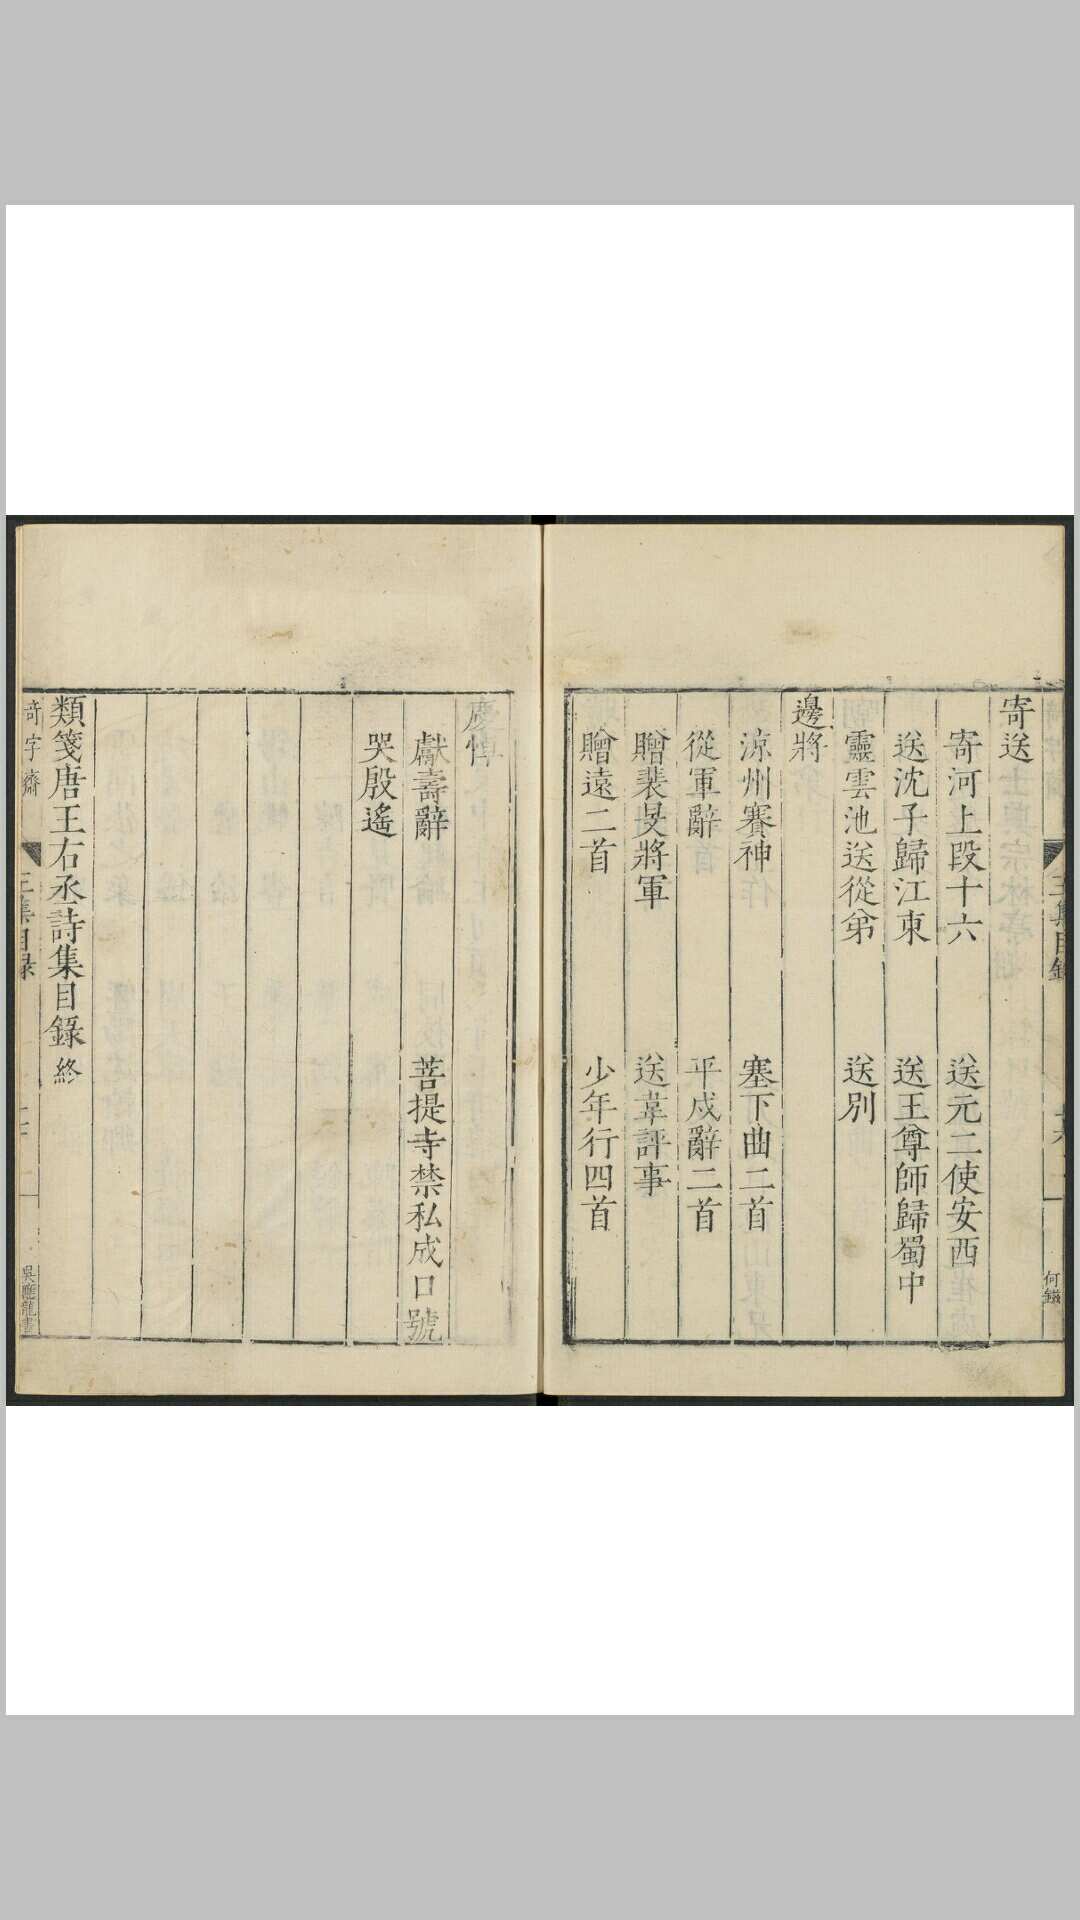 寄送
寄河上段十六　送元二使安西
送沈子歸江東　送王尊師歸蜀中
靈雲池送從弟　送別
邊將
涼州賽神　塞下曲二首
從軍辭　平戍辭二首
贈裴旻將軍　送韋評事
贈遠二首　少年行四首
慶悼
獻壽辭　菩提寺禁私成口號
哭殷遙
類箋唐王右丞詩集目錄終
奇字齋
集目錄
吳應龍書
何鎡